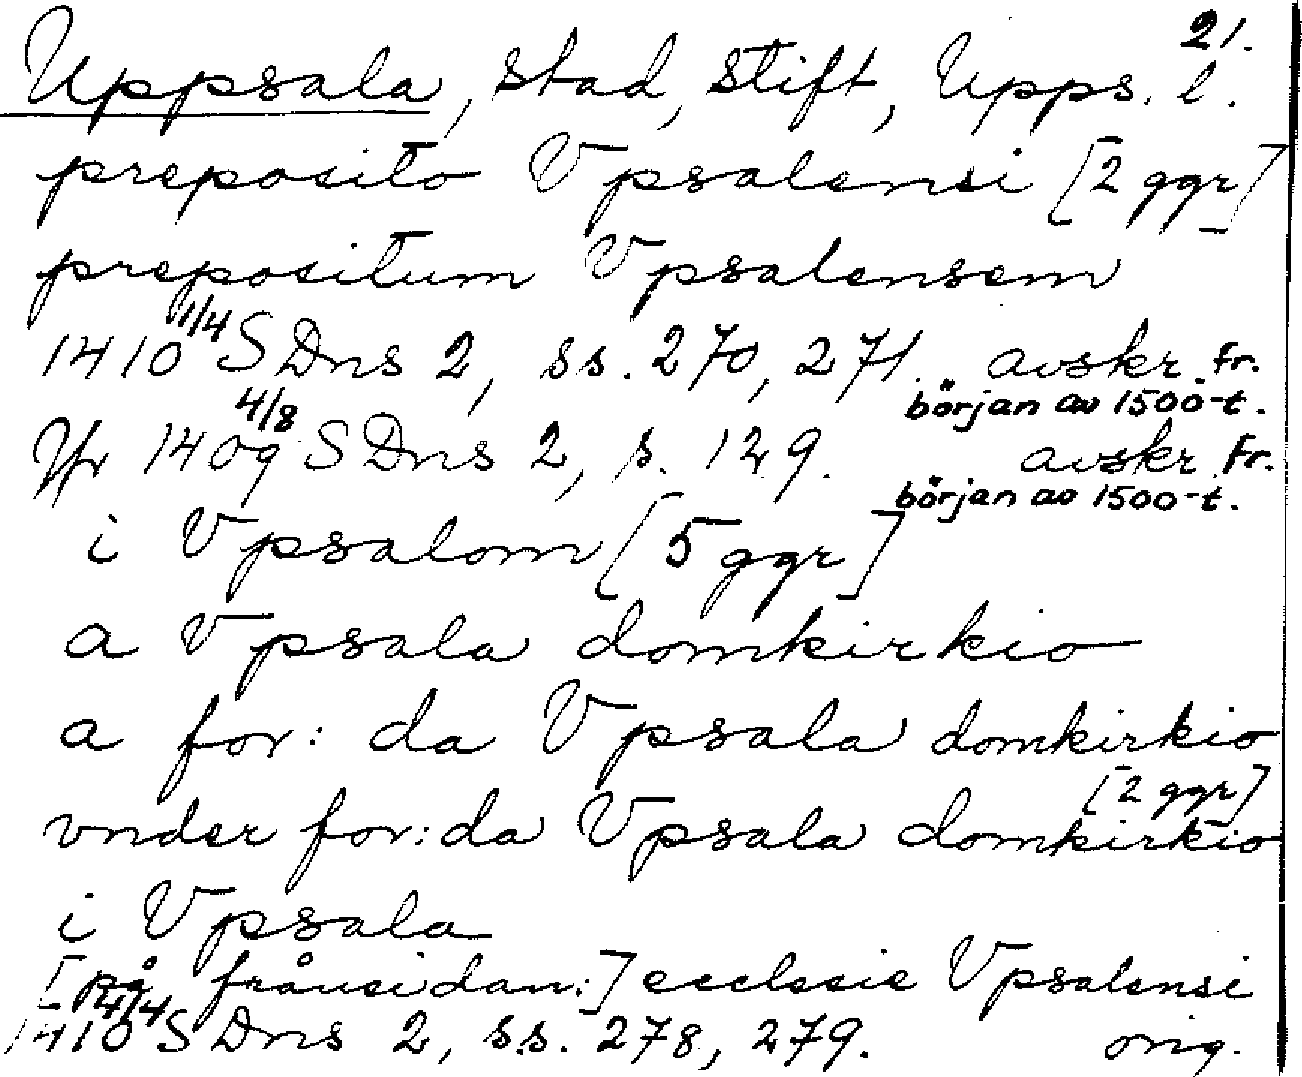 21.
Uppsala, stad, stift, Upps. l.
preposito Vpsalensi [2 ggr]
prepositum Vpsalensem
1410 1/4 SDns 2, ss. 270, 271. avskr. fr.
början av 1500-t.
Jfr 1409 4/8 SDns 2, s. 129. avskr. fr.
början av 1500-t.
i Vpsalom [5 ggr]
a Vpsala domkirkio
a for: da Vpsala domkirkio
[2 ggr]
vnder for: da Vpsala domkirkio
i Vpsala
[på frånsidan:] ecclesie Vpsalensi
1410 14/4 SDns 2, s.s. 278, 279. orig.